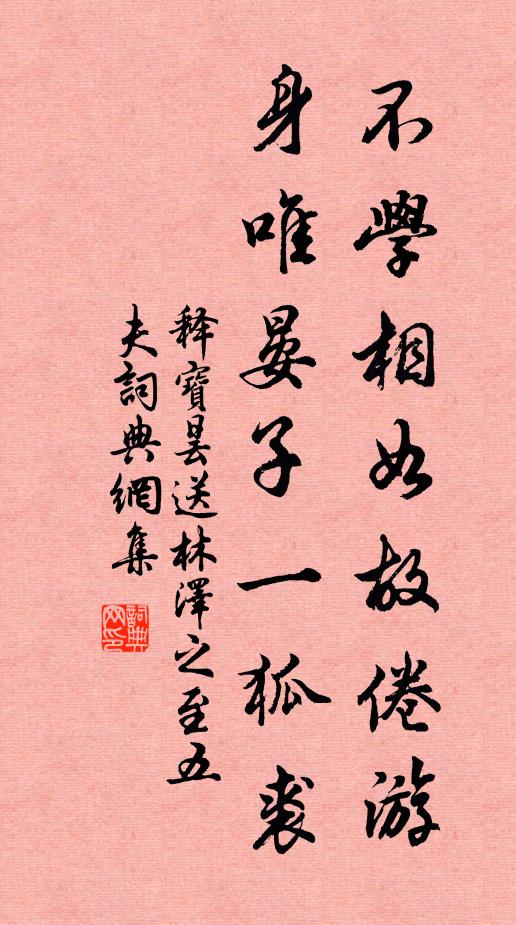 不學相如故倦游
身唯晏子一狐裘
释寶曇送林澤之至五
夫詞典網集
詞典网印